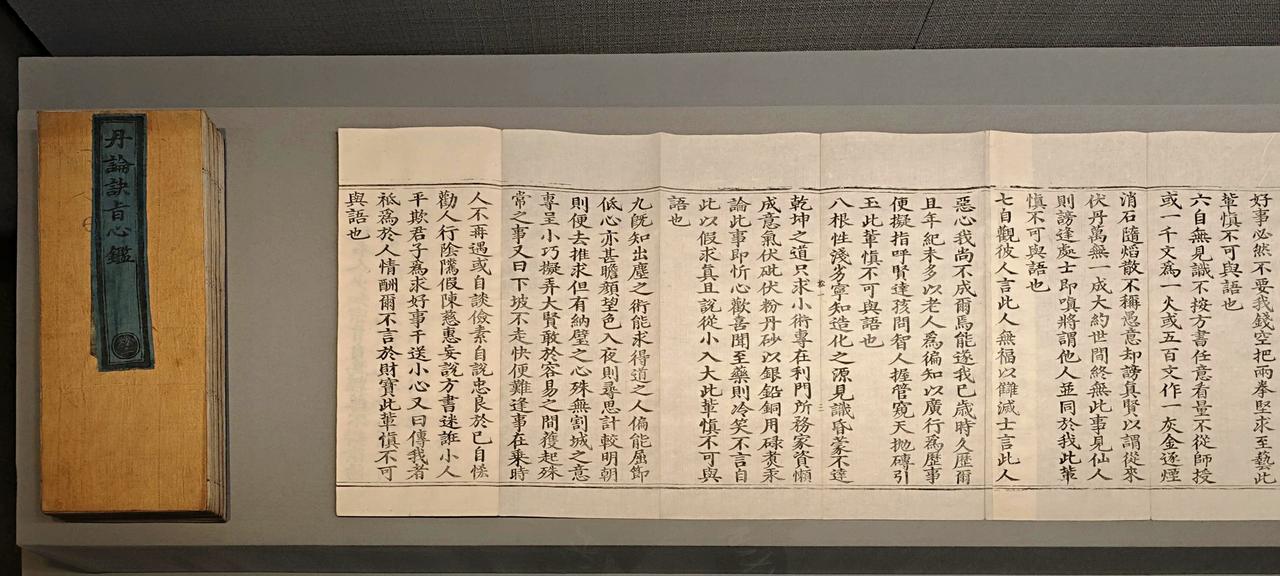 好事必然不要我錢空把兩拳堅求至藝此
輩慎不可與語也
六自無見識不按方書任意看量不從師授
或一千文為一火或五百文作一灰金逐煙
消石隨熖散不稱愚意却謗真賢以謂從來
伏丹萬無一成大約世間終無此事見仙人
則謗逢處士即嗔將謂他人並同於我此輩
慎不可與語也
七自觀彼人言此人無福以讎滅士言此人
惡心我尚不成爾焉能遂我已歲時久歷爾
且年紀未多以老人為徧知以廣行為歷事
便擬指呼賢達孩問智人握管窺天拋磚引
玉此輩慎不可與語也
八根性淺劣寧知造化之源見識昏蒙不達
乾坤之道只求小術專在利門所務家資懶
成意氣伏砒伏粉丹砂以銀鉛銅用硑煑汞
論此事即忻心歡喜聞至藥則冷笑不言自
此以假求真且說從小入大此輩慎不可與
語也
九既知出塵之術能求得道之人偏能屈節
低心亦甚瞻顏望色入夜則尋思計較明朝
則便去推求但有納壁之心殊無割城之意
專呈小巧擬弄大賢敢於容易之間獲起殊
常之事又曰下坡不走快便難逢事在乗時
人不再遇或自談儉素自說忠良於己自恡
勸人行陰隲假陳慈惠妄說方書迷誑小人
平欺君子為求好事干送小心又曰傳我者
秪為於人情酬爾不言於財寶此輩慎不可
與語也
丹論訣旨心鑑